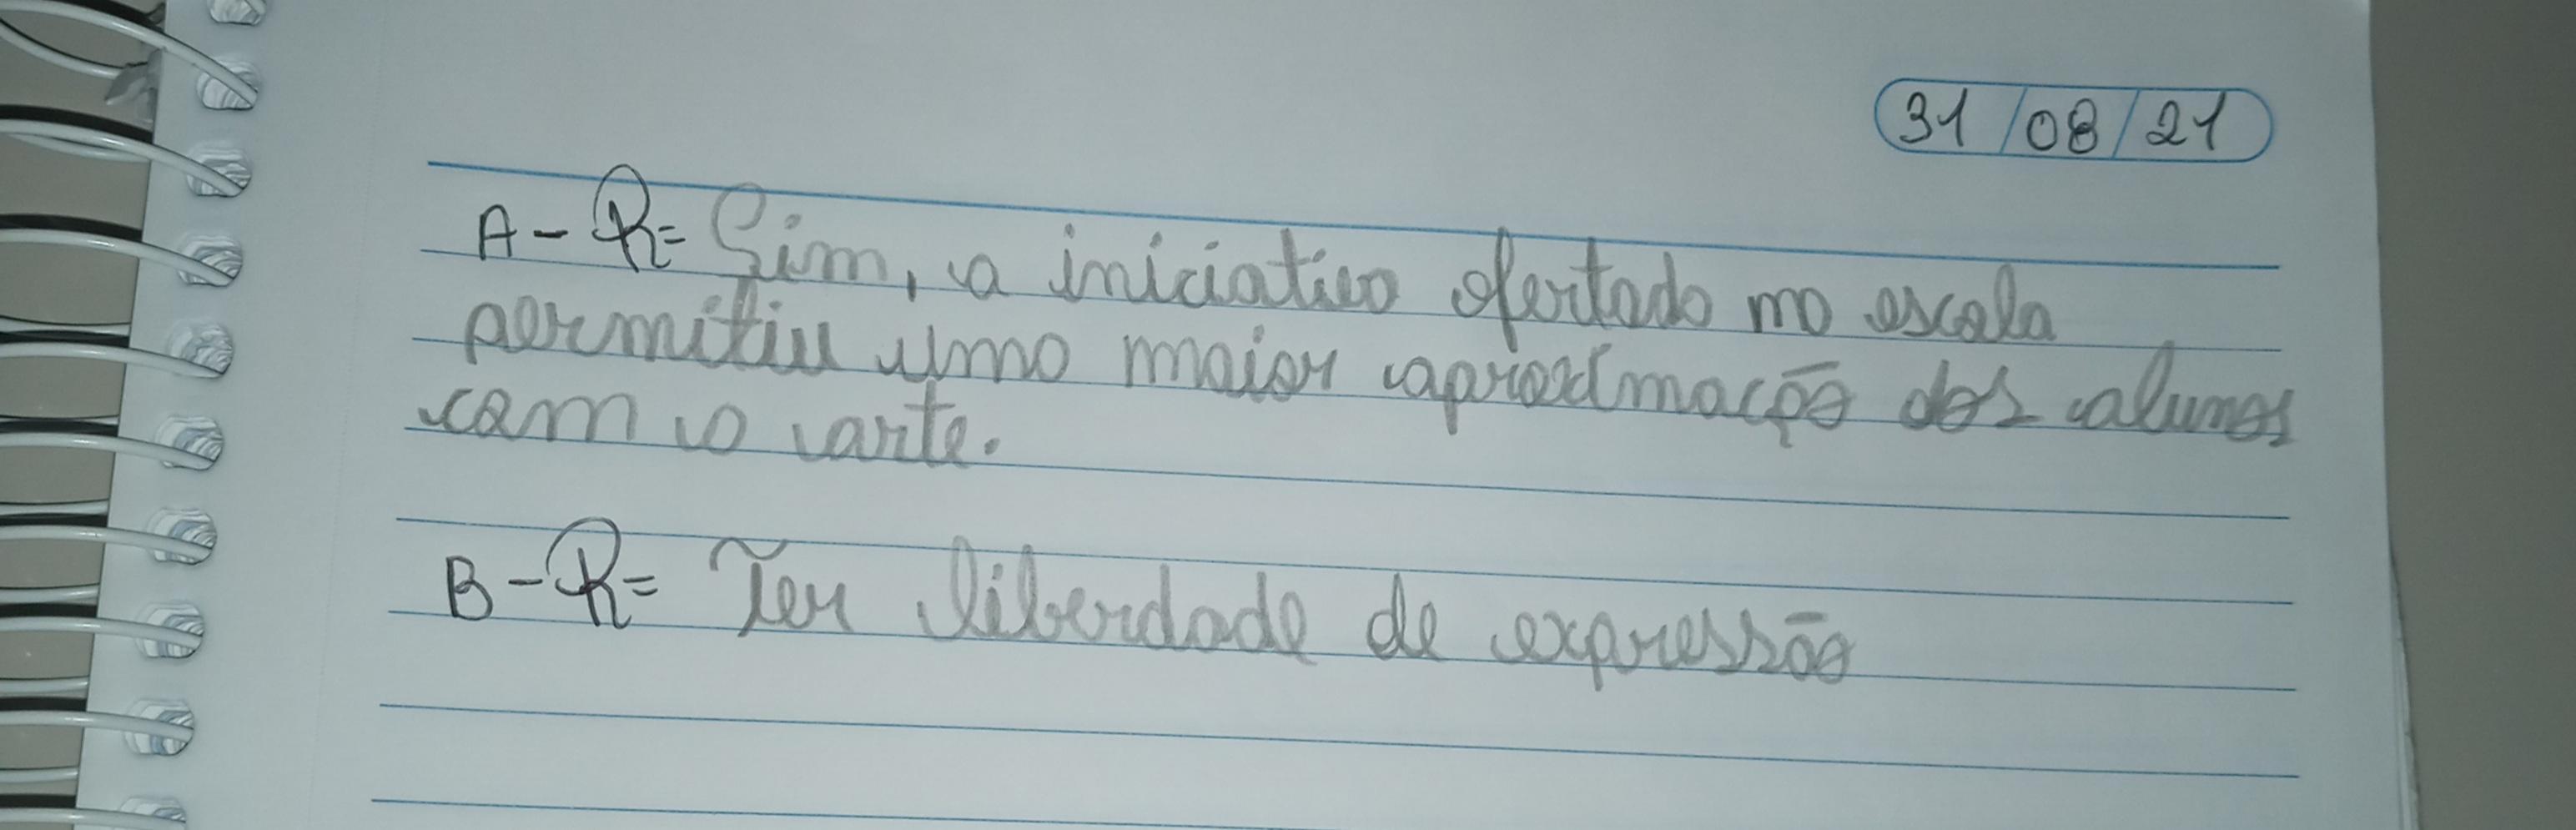 31/08/21
A - R= Sim, a iniciativa ofertada na escola
permitiu uma maior aproximação dos alunos
com a arte.
B - R= Ter liberdade de expressão